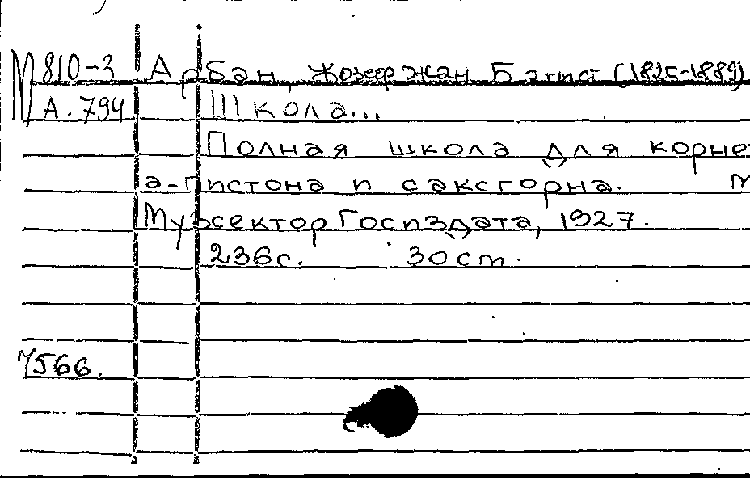 М810-3 Арбан, Жозеф Жан Батист (1825-1889)
А.794 Школа...
Полная школа для корне
а-пистона и саксгорна. М
Музсектор Госиздата, 1927.
236с. 30 cm.
7566.